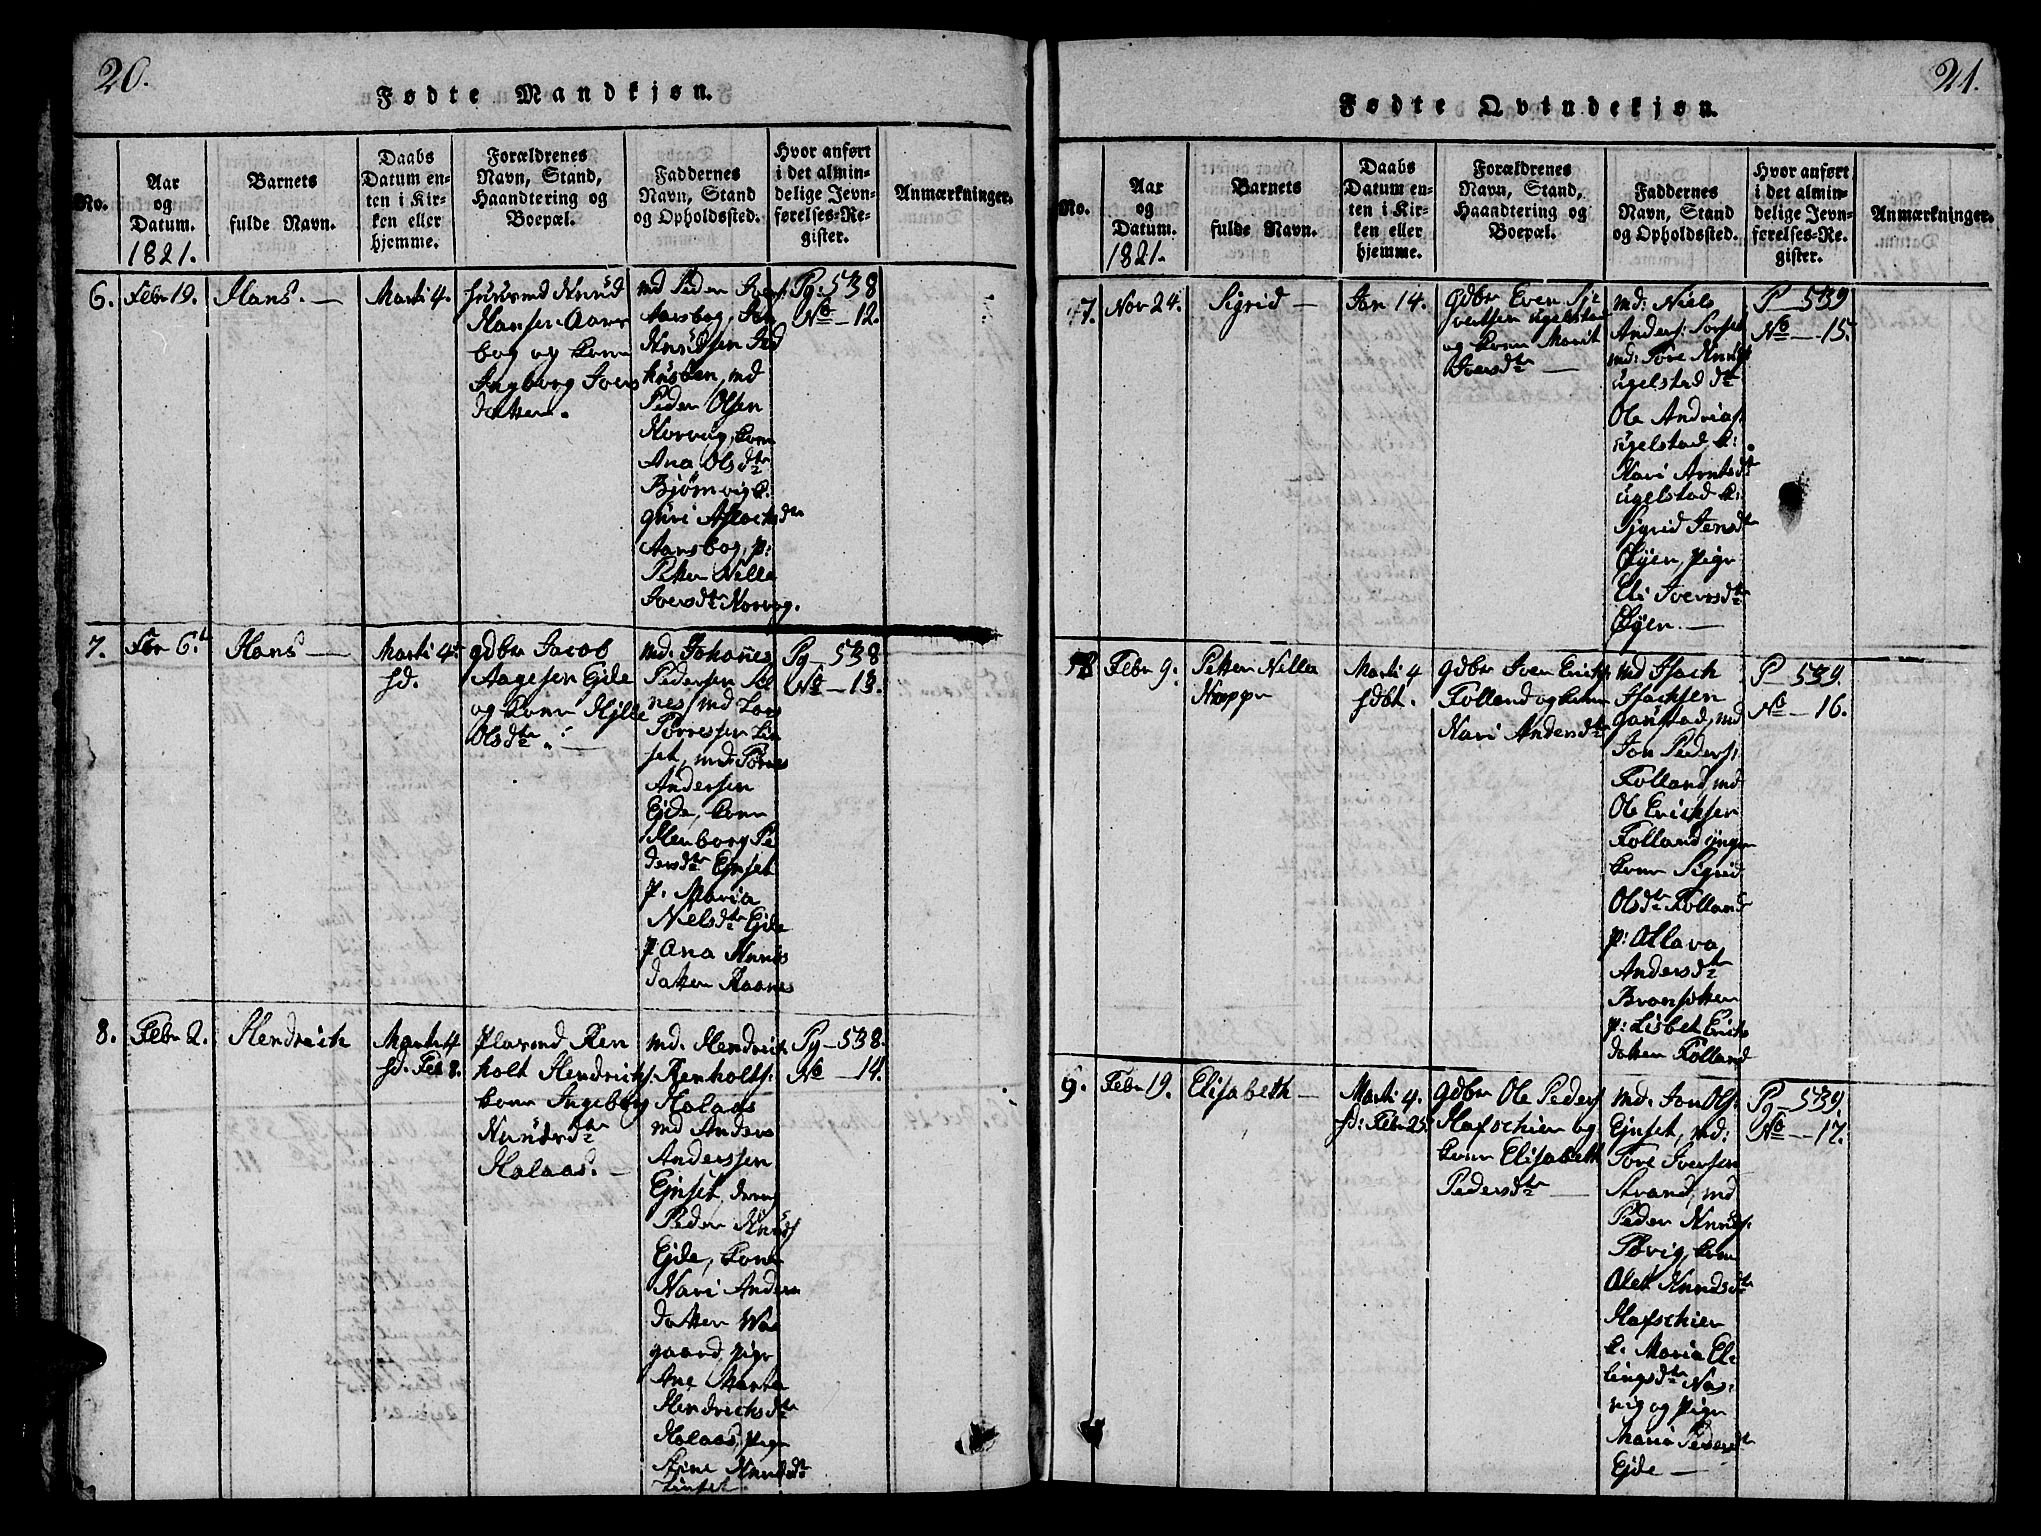 20.
Fødte Mandkjøn.
No.
Aar og Datum. 1821.
Barnets fulde Navn.
Daabs Datum enten i Kirken eller hjemme.
Forældrenes Navn, Stand, Haandtering og Boepæl.
Faddernes Navn, Stand og Opholdssted.
Hvor anført i det almindelige Jevnførelses-Register.
Anmærkninger.
6.
Febr 19.
Hans. —
Marti 4.
Huusmd Knud
Hansen Aars
bog og kone
Ingborg Ivers
datter.
md Peder Ivers:
Aarsbog, Jon
Knudsen
md
Peder Olsen
Norvug, kone
Ana Olsdtr
Bjørnvig k.
Guri Aslachsdtr
Aarsbog, p:
Petter Nille
Iversdtr Norvog.
Pg: 538
No — 12.
7.
Febr 6t
Hans —
Marti 4
sd.
gdbr Jacob
Aagesen Ejde
og kone Hylle
Olsdtr. —
md. Johanes
Pedersen
nes, md Lars
Torressen
set, md: Torres
Andersen
Ejde, kone
Henborg Pe
dersdtr Ejnset
p. Maria
Nielsdtr Ejde
p: Ana Knuds
datter Raanes
Pg — 538
No — 13.
8.
Febr 2.
Hendrich
Marti 4
sd. Feb 8.
Plasmd Ren
holt Hendrichs:
kone Ingeborg
Knudsdtr
Holaas. —
md. Hendrich
Renholts:
Holaas
md Anders
Anderssen
Ejnset, dreng
Peder Knuds
Ejde, kone
Kari Anders
datter Waa
gaard, pige
Ane Marta
Hendrichsdtr
Holaas, pige
Ane Knudsdtr
Pg — 538.
No — 14.
21.
Fødte Qvindekjøn.
No.
Aar og Datum. 1821.
Barnets fulde Navn.
Daabs Datum enten i Kirken eller hjemme.
Forældrenes Navn, Stand, Haandtering og Boepæl.
Faddernes Navn, Stand og Opholdssted.
Hvor anført i det almindelige Jevnførelses-Register.
Anmærkninger.
7.
Nov 24.
Sigrid —
Jan 14.
gdbr Even Sj
vertsen Ugelstad
og kone Marit
Iversdtr —
md: Niels
Anders: Torset
md: Tore Knuds
Ugelstad dtr
Ole Andreas
Ugelstad k:
Kari Arntsdtr
Ugelstad k:
Sigrid Jensdtr
Øyen, pige
Eli Iversdtr
Øyen. —
P — 539
No — 15.
8
Febr 9.
Petter Nille
Marti 4
sdbt.
gdbr Iver Erichs
Folland og kone
Kari Andersdtr
md Isach
Isachsen
Gaustad, md
Jon Peders:
Folland, md
Ole Erichsen
Folland yngre
kone Sigrid
Olsdtr Folland
p: Ollava
Andersdtr
p: Lisbet Erichs
datter Folland
P — 539.
No — 16.
9.
Febr 19.
Elisabeth —
Marti 4.
sd: Febr 25.
gdbr Ole Peders
Hafschier og
kone Elisabeth
Pedersdtr —
md. Jon Ols:
Ejnset, md:
Tore Iversen
Strand, md
Peder Knuds:
kone
Olet Knudsdtr
Hafschier
k. Maria El
lingsdtr Nas
vig og pige
Maria Pedersdtr
Ejde —
Pg — 539.
No — 17.